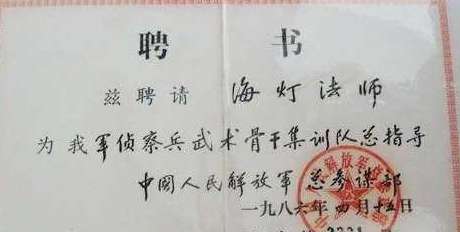 聘书
兹聘请 海灯法师
为我军侦察兵武术骨干集训队总指导
中國人民解放軍总参谋部
一九八六年四月十五日